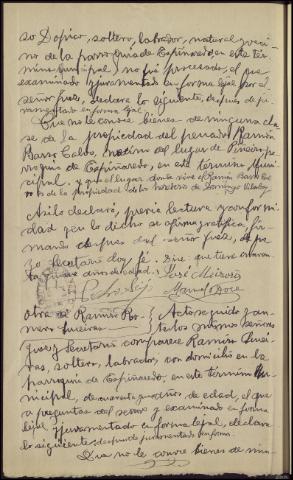 so Dopico, soltero, labrador, natural y veci-
no de la parroquia de Espiñaredo, en este tér-
mino municipal, no fué procesado, el que
examinado y juramentado en forma legal por el
señor Juez, declara lo siguiente, después de ju-
ramentado en forma
Que no le conoce bienes de ninguna cla-
se de la propiedad del penado Ramón
Barro Calvo, vecino del lugar de
rroquia de Espiñaredo, en este término muni-
cipal, y que el lugar donde vive el Ramón Barro
es de la propiedad de los herederos de Domingo
Así lo declaró, previa lectura y conformi-
dad que lo dicho se afirma y ratifica, fir-
mando después del señor Juez, de que
yo Secretario doy fé.
años de edad. José
Otra de Ramón
Piñeiras Acto seguido y an-
te los mismos señores
Juez y Secretario comparece Ramón Piñei-
ras, soltero, labrador, con domicilio en la
parroquia de Espiñaredo, en este término mu-
nicipal, de cuarenta y años de edad, el que
a preguntas del señor y examinado en forma
legal y juramentado en forma legal, declara
lo siguiente; después de juramentado en forma.
Que no le conoce bienes de nin-